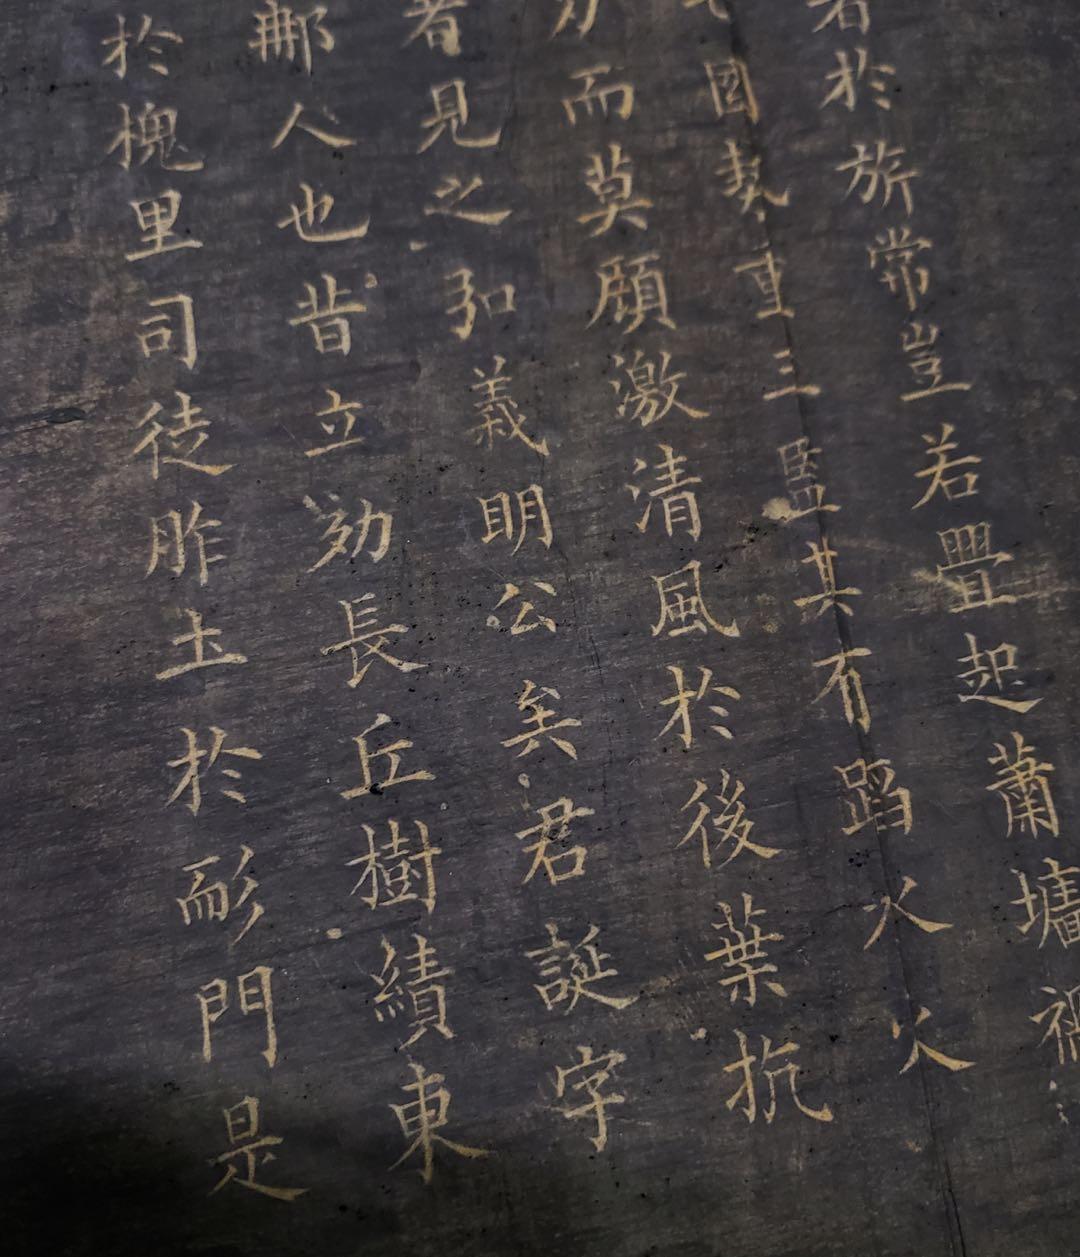 者於旂常豈若畳起蕭墻禍
國執重三監其有蹈水火
而莫顧激清風於後葉抗
者見之弘義明公矣君誕字
郍人也昔立効長丘樹績東
於槐里司徒胙土於耏門是